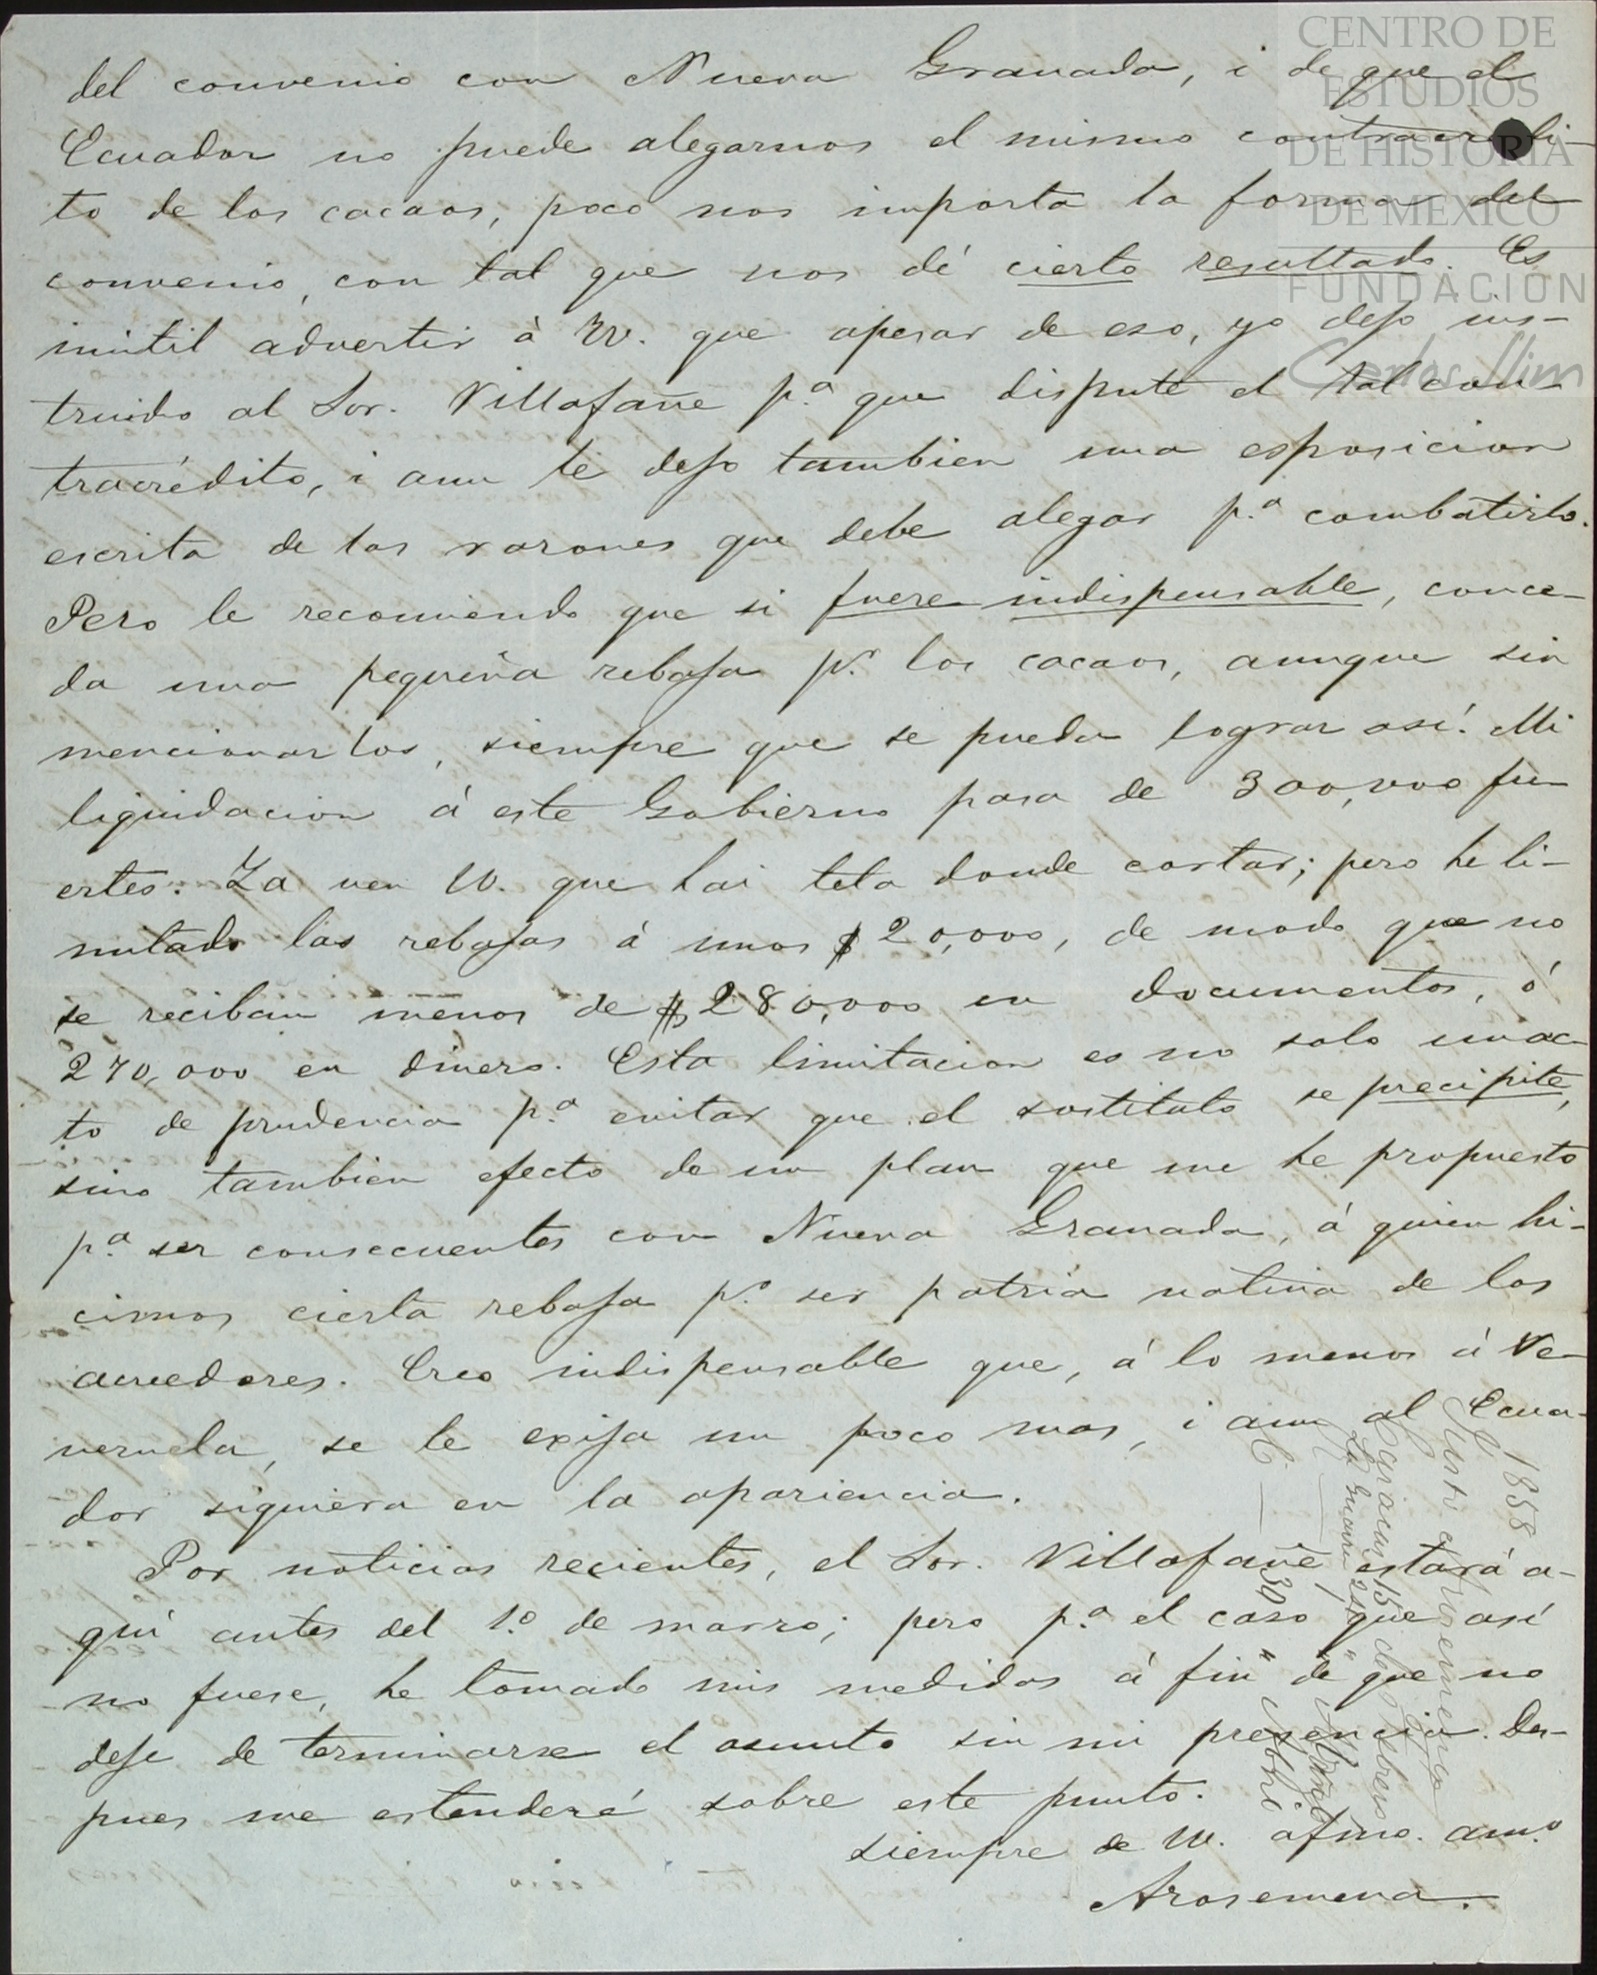 del convenio con Nueva Granada, i de que el
Ecuador no puede alegarnos el mismo contracrédi-
to de los cacaos, poco nos importa la forma del
convenio, con tal que nos dé cierto resultado. Es
inútil advertir à W. que apesar de eso, yo dejo ins-
truido al Sor. Villafañe p.ª que dispute el tal con-
tracrédito, i aun le dejo tambien una esposicion
escrita de las razones que debe alegar p.ª combatirlo.
Pero le recomiendo que si fuere indispensable, conce-
da una pequeña rebaja p.r los cacaos, aunque sin
mencionarlos, siempre que se pueda lograr así. Mi
liquidacion á este Gobierno pasa de 300,000 fu-
ertes. Ya ven W. que hai tela donde cortar; pero he li-
mitado las rebajas á unos $20,000, de modo que no
se reciban menos de $280,000 en documentos, ó
270,000 en dinero. Esta limitacion es no solo un ac-
to de prudencia p.ª evitar que el sostituto se precipite,
sino tambien efecto de un plan que me he propuesto
p.ª ser consecuentes con Nueva Granada, á quien hi-
cimos cierta rebaja p.r ser patria nativa de los
acreedores. Creo indispensable que, á lo menos á Ve-
nezuela, se le exija un poco mas, i aun al Ecua-
dor siquiera en la apariencia.
Por noticias recientes, el Sor. Villafañe estará a-
quí antes del 1.º de marzo; pero p.ª el caso que así
no fuese, he tomado mis medidas á fin de que no
deje de terminarse el asunto sin mi presencia. Des-
pues me estenderé sobre este punto.
siempre de W. afmo. am.º
Arosemena.
1858
Justo Arosemena
Caracas 15 de Febrero
La Guaira 21 "
30 "
CENTRO DE
ESTUDIOS
DE HISTORIA
DE MEXICO
FUNDACION
Carlos Slim